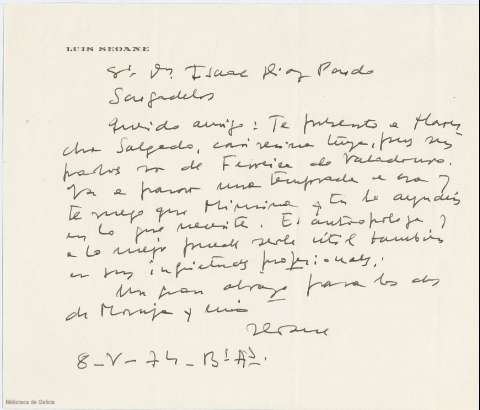 LUIS SEOANE
Sr. Dn. Isaac Diaz Pardo
Sargadelos
Querido amigo: Te presento a
cha Salgado, casi vecina tuya, pues sus
padres son de Ferreira do Valadouro.
Va a pasar una temporada a esa y
te ruego que Mimina y tu la ayudeis
en lo que necesite. Es antropóloga y
a lo mejor puede serle útil tambien
en sus inquietudes profesionales.
Un gran abrazo para los dos
de Maruja y mio
Seoane
8-V-74-Bs As.
Biblioteca de Galicia